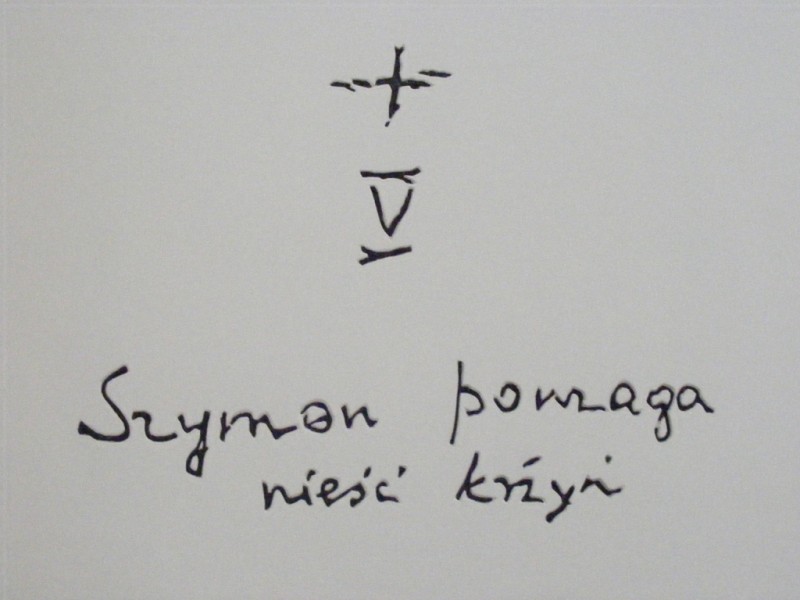 V
Szymon pomaga
nieść krzyż